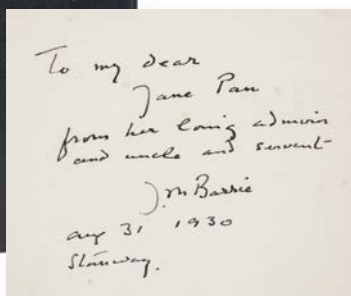 To my dear
Jane Pan
from her loving admirer
and uncle and servant
J.M Barrie
aug 31 1930
Stanway.